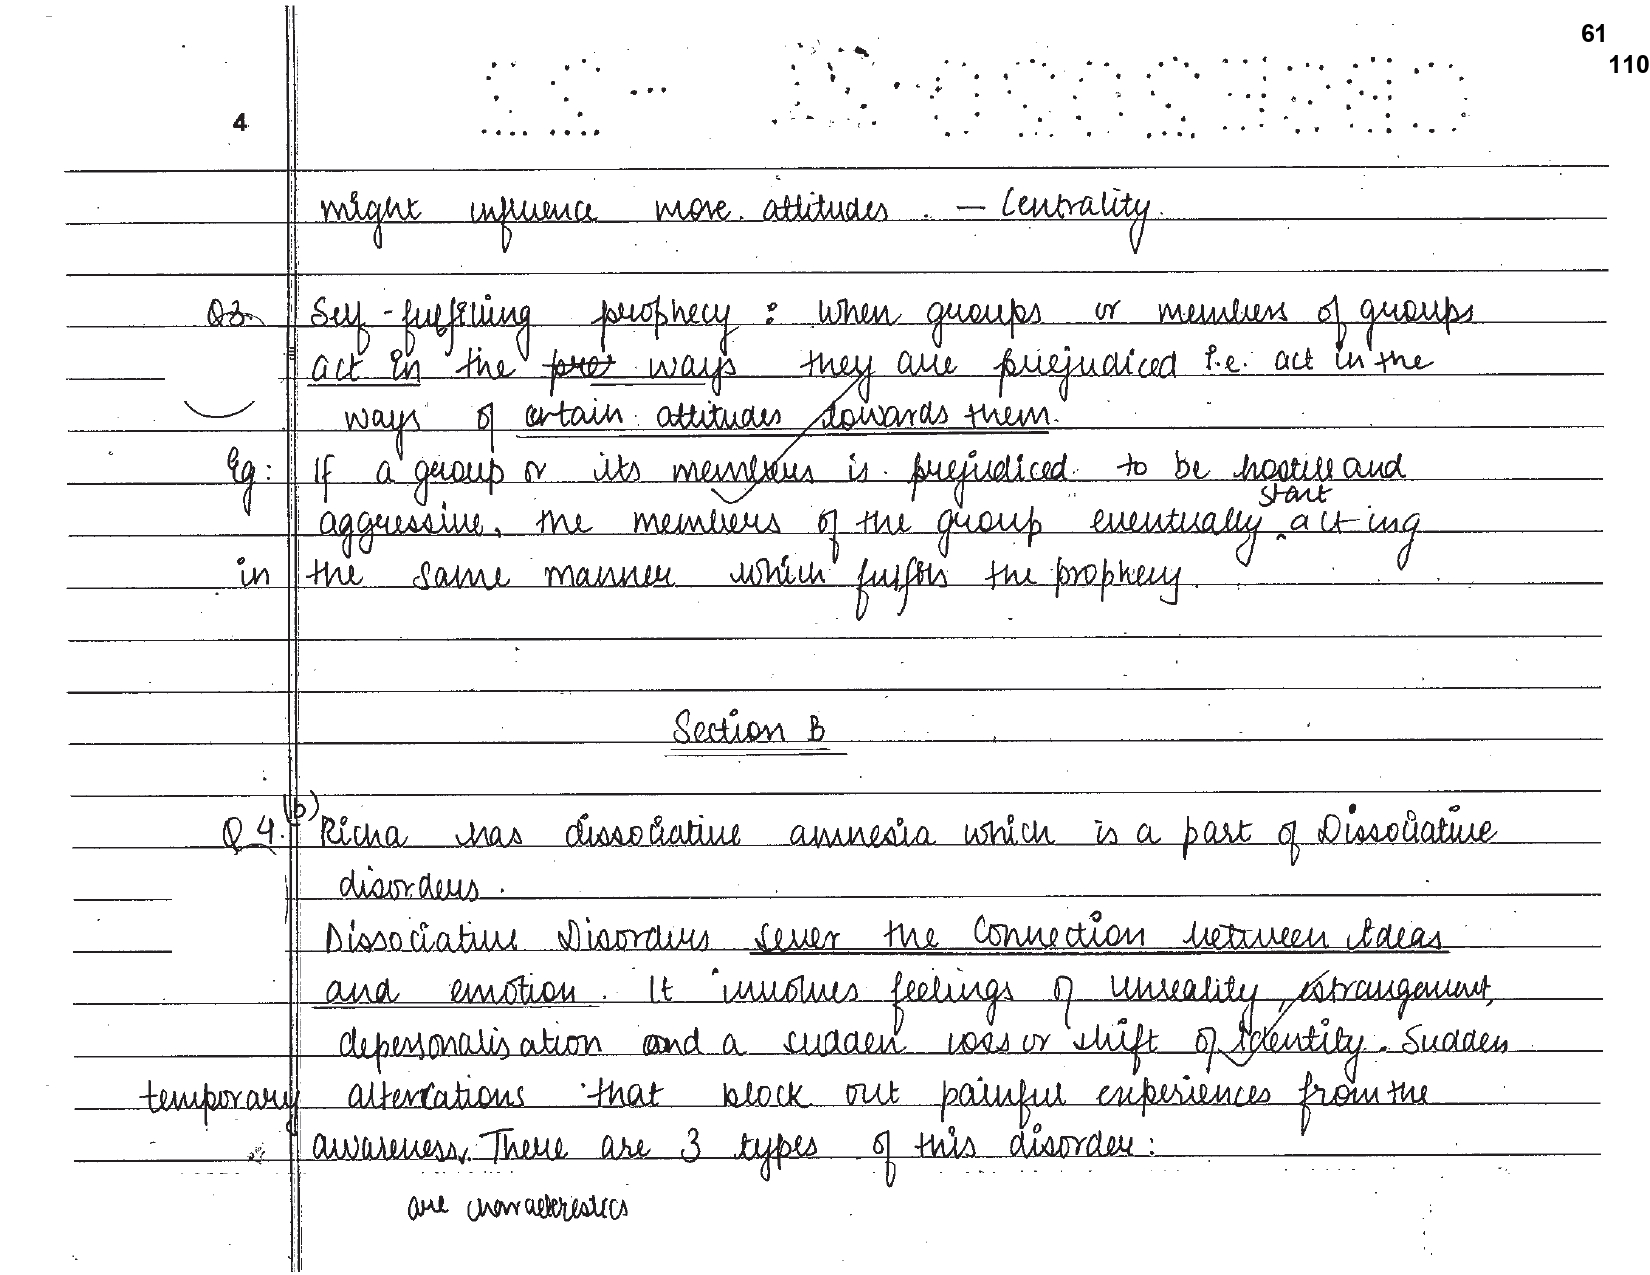 61
110
4
might influence more attitudes. — Centrality.
Q3 Self-fulfilling prophecy : When groups or members of groups
act in the pre ways they are prejudiced i.e. act in the
ways of certain attitudes towards them.
Eg: If a group or its members is prejudiced to be hostile and
start
aggressive, the members of the group eventually ^ acting
in the same manner which fulfils the prophecy.
Section B
Q4. (b) Richa has dissociative amnesia which is a part of Dissociative
disorders.
Dissociative Disorders sever the Connection between Ideas
and emotion. It involves feelings of Unreality, estrangement,
depersonalisation and a sudden loss or shift of identity. Sudden
temporary alterations that block out painful experiences from the
awareness. There are 3 types of this disorder:
are characteristics